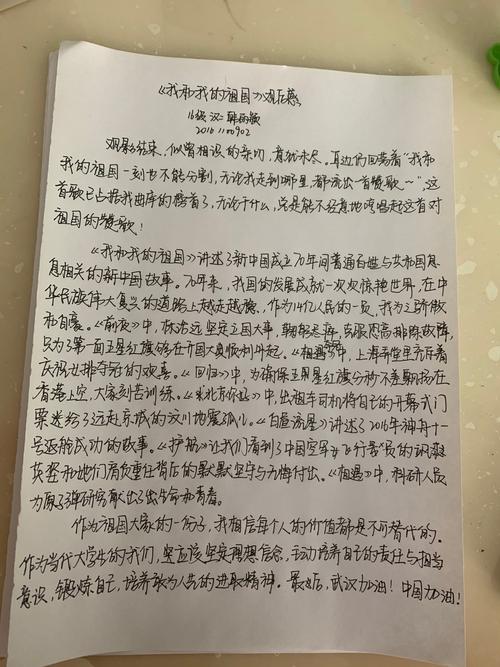 《我和我的祖国》观后感
16级 汉二 韩
20161100902
观影结束，似曾相识的亲切，意犹未尽。耳边仍回荡着“我和
我的祖国一刻也不能分割，无论我走到哪里，都流出一首赞歌~”，这
首歌已占据我曲库的榜首了，无论干什么，总是能不经意地哼唱起这首对
祖国的赞歌！
《我和我的祖国》讲述了新中国成立70年间普通百姓与共和国息
息相关的新中国故事。70年来，我国的发展成就一次次惊艳世界，在中
华民族伟大复兴的道路上越走越稳，作为14亿人民的一员，我为之骄傲
和自豪。《前夜》中，林治远坚定立国大事，克服困高排除故障，
只为了第一面五星红旗能够在开国大典顺利升起。《夺冠》中，上海弄堂里充斥着
庆祝女排夺冠的欢喜。《回归》中，为确保五星红旗分秒不差飘扬在
香港上空，大家刻苦训练。《北京你好》中，出租车司机将自己的开幕式门
票送给了远赴京城的汶川地震孤儿。《白昼流星》讲述了2016年神舟十一
号返航成功的故事。《护航》让我们看到了中国空军女飞行员的飒爽
英姿和她们肩负重任背后的默默坚守与无悔付出。《相遇》中，科研人员
为原子弹研究献出了生命和青春。
作为祖国大家的一份子，我相信每个人的价值都是不可替代的。
作为当代大学生的我们，更应该坚定理想信念，主动培养自己的责任与担当
意识，锻炼自己，培养敢为人先的进取精神。最后，武汉加油！中国加油！